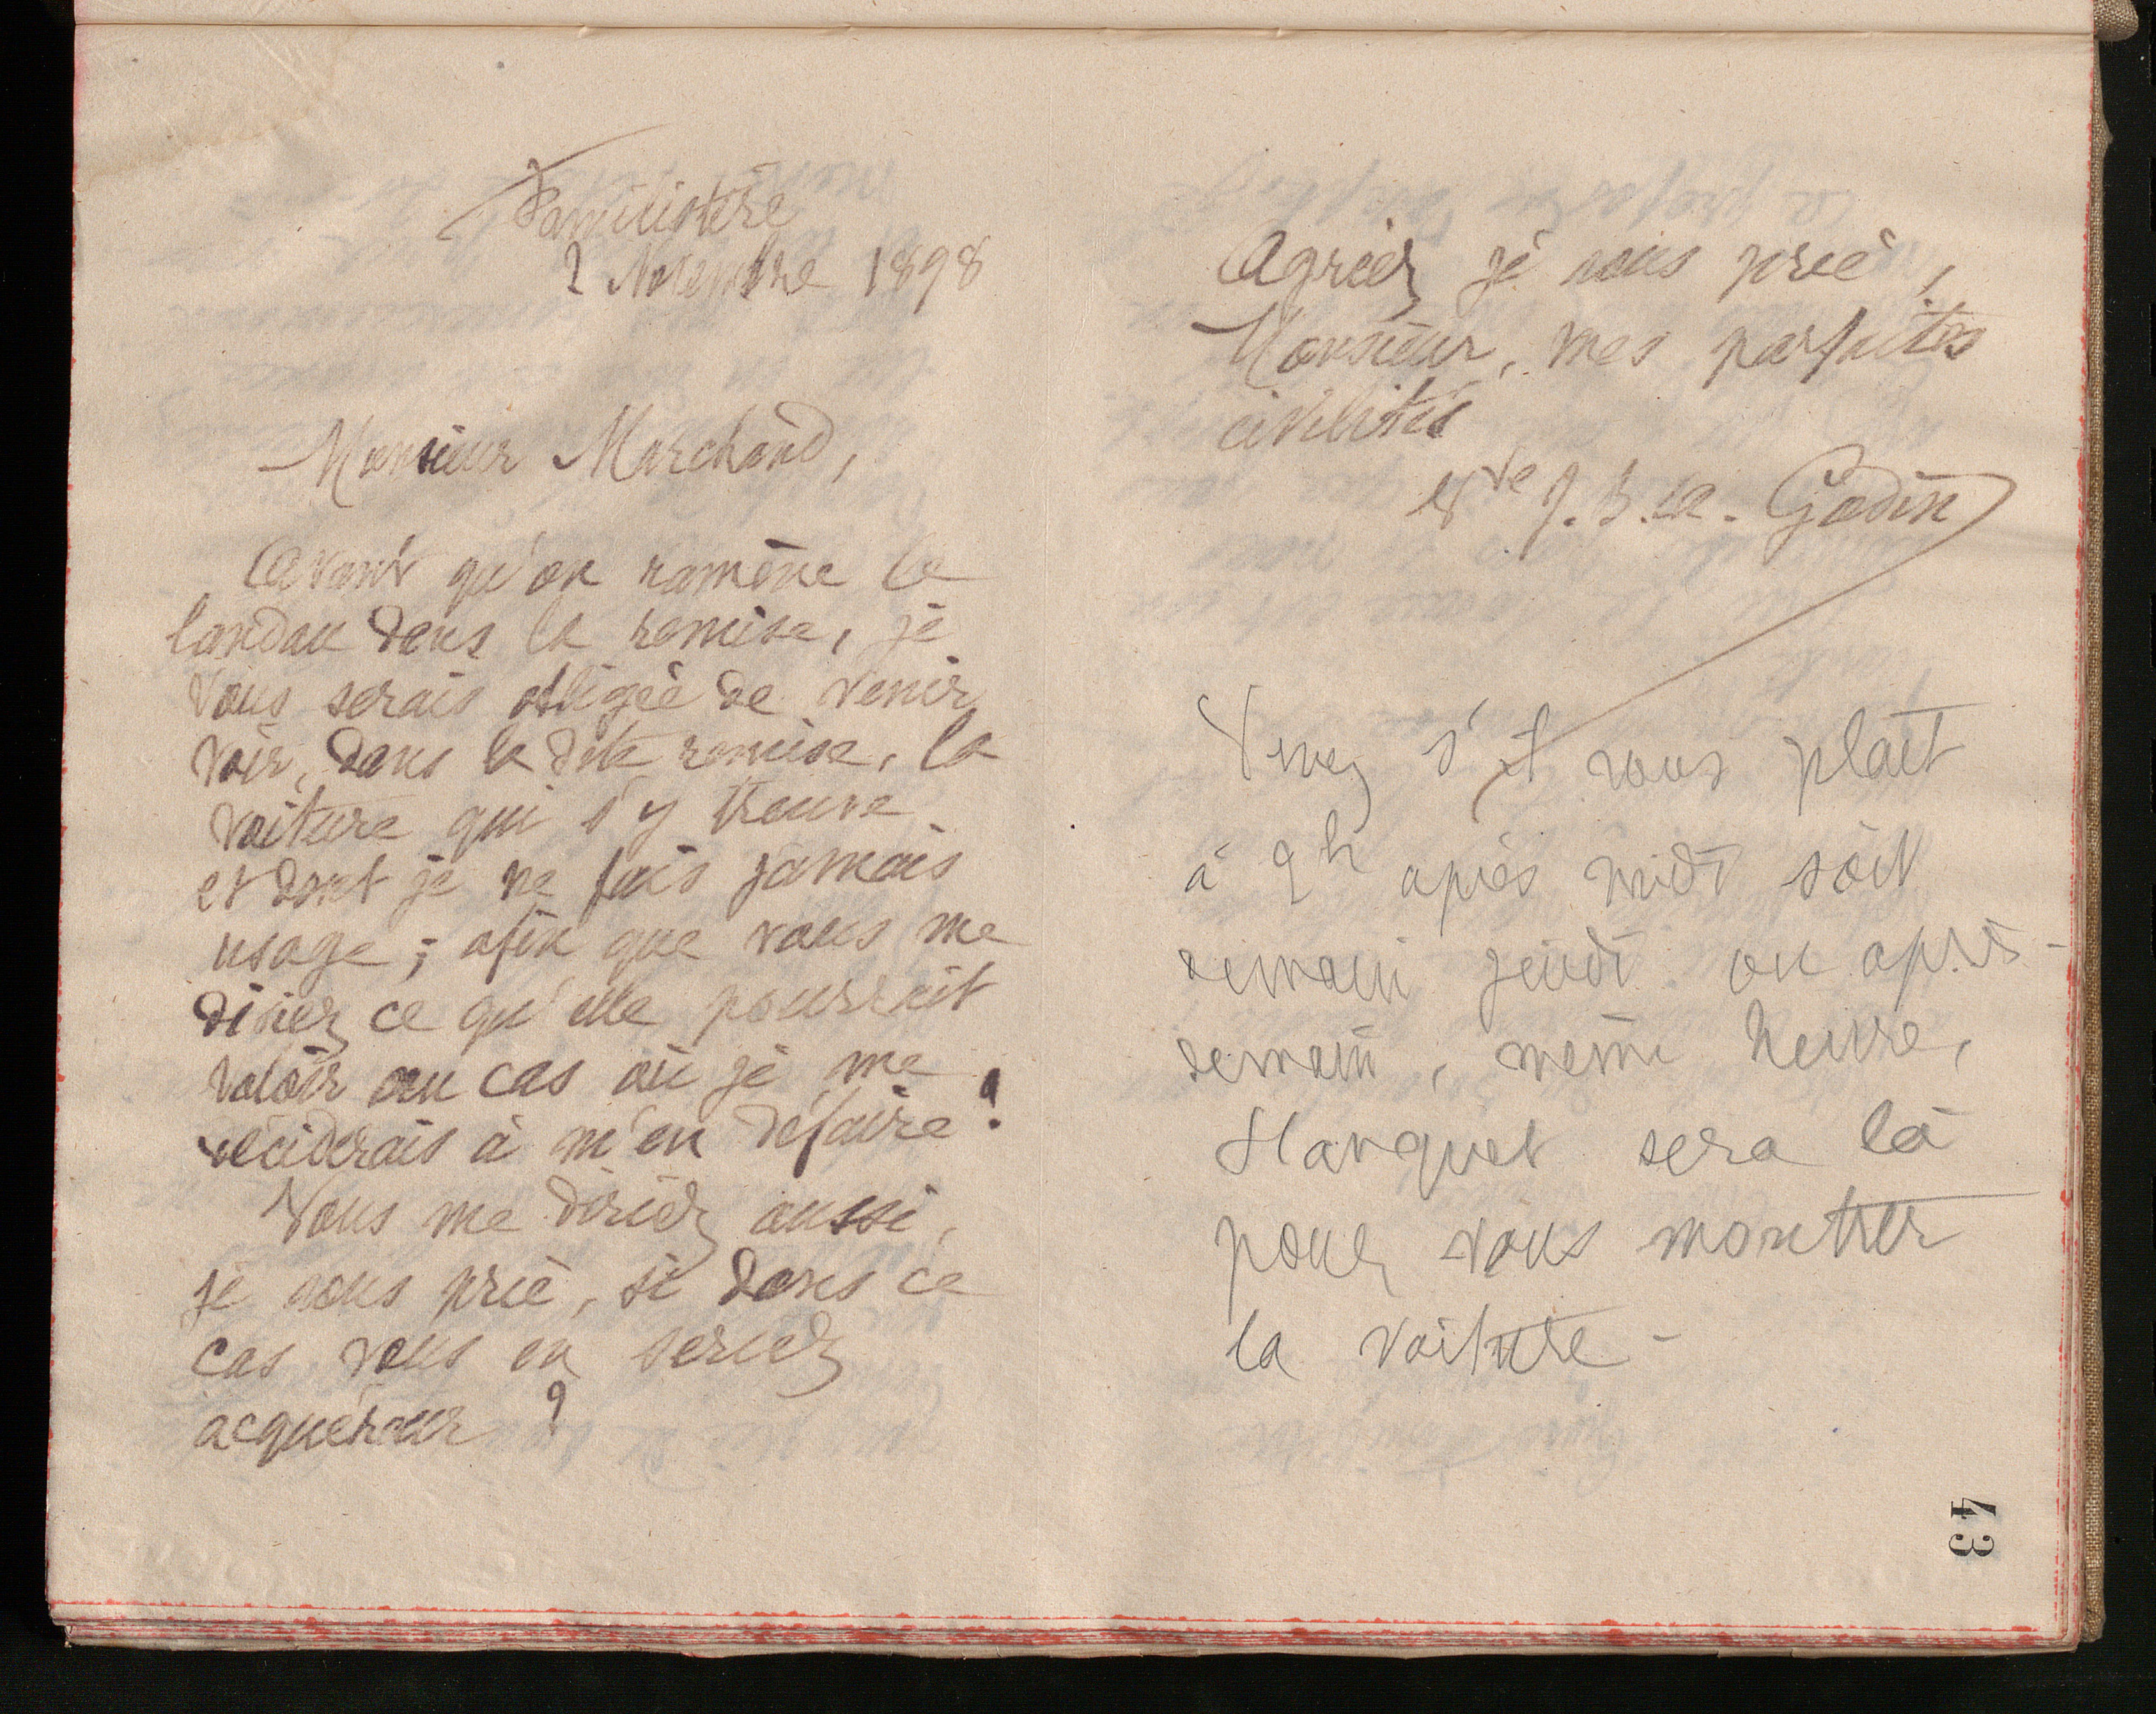 Familistère
2 Novembre 1898
Monsieur Marchand,
Avant qu'on ramène le
landau dans la remise, je
vous serais obligée de venir
voir, dans la dite remise, la
voiture qui s'y trouve
et dont je ne fais jamais
usage ; afin que vous me
disiez ce qu'elle pourrait
valoir au cas où je me
déciderais à m'en défaire ?
Vous me diriez aussi,
je vous prie, si dans ce
cas vous en seriez
acquéreur ?
Agréez je vous prie,
Monsieur, mes parfaites
civilités
Vve J. B. A. Godin
Venez s'il vous plaît
à 2h après midi soit
demain jeudi ou après-
demain, même heure,
Hanquet sera là
pour vous montrer
la voiture -
43